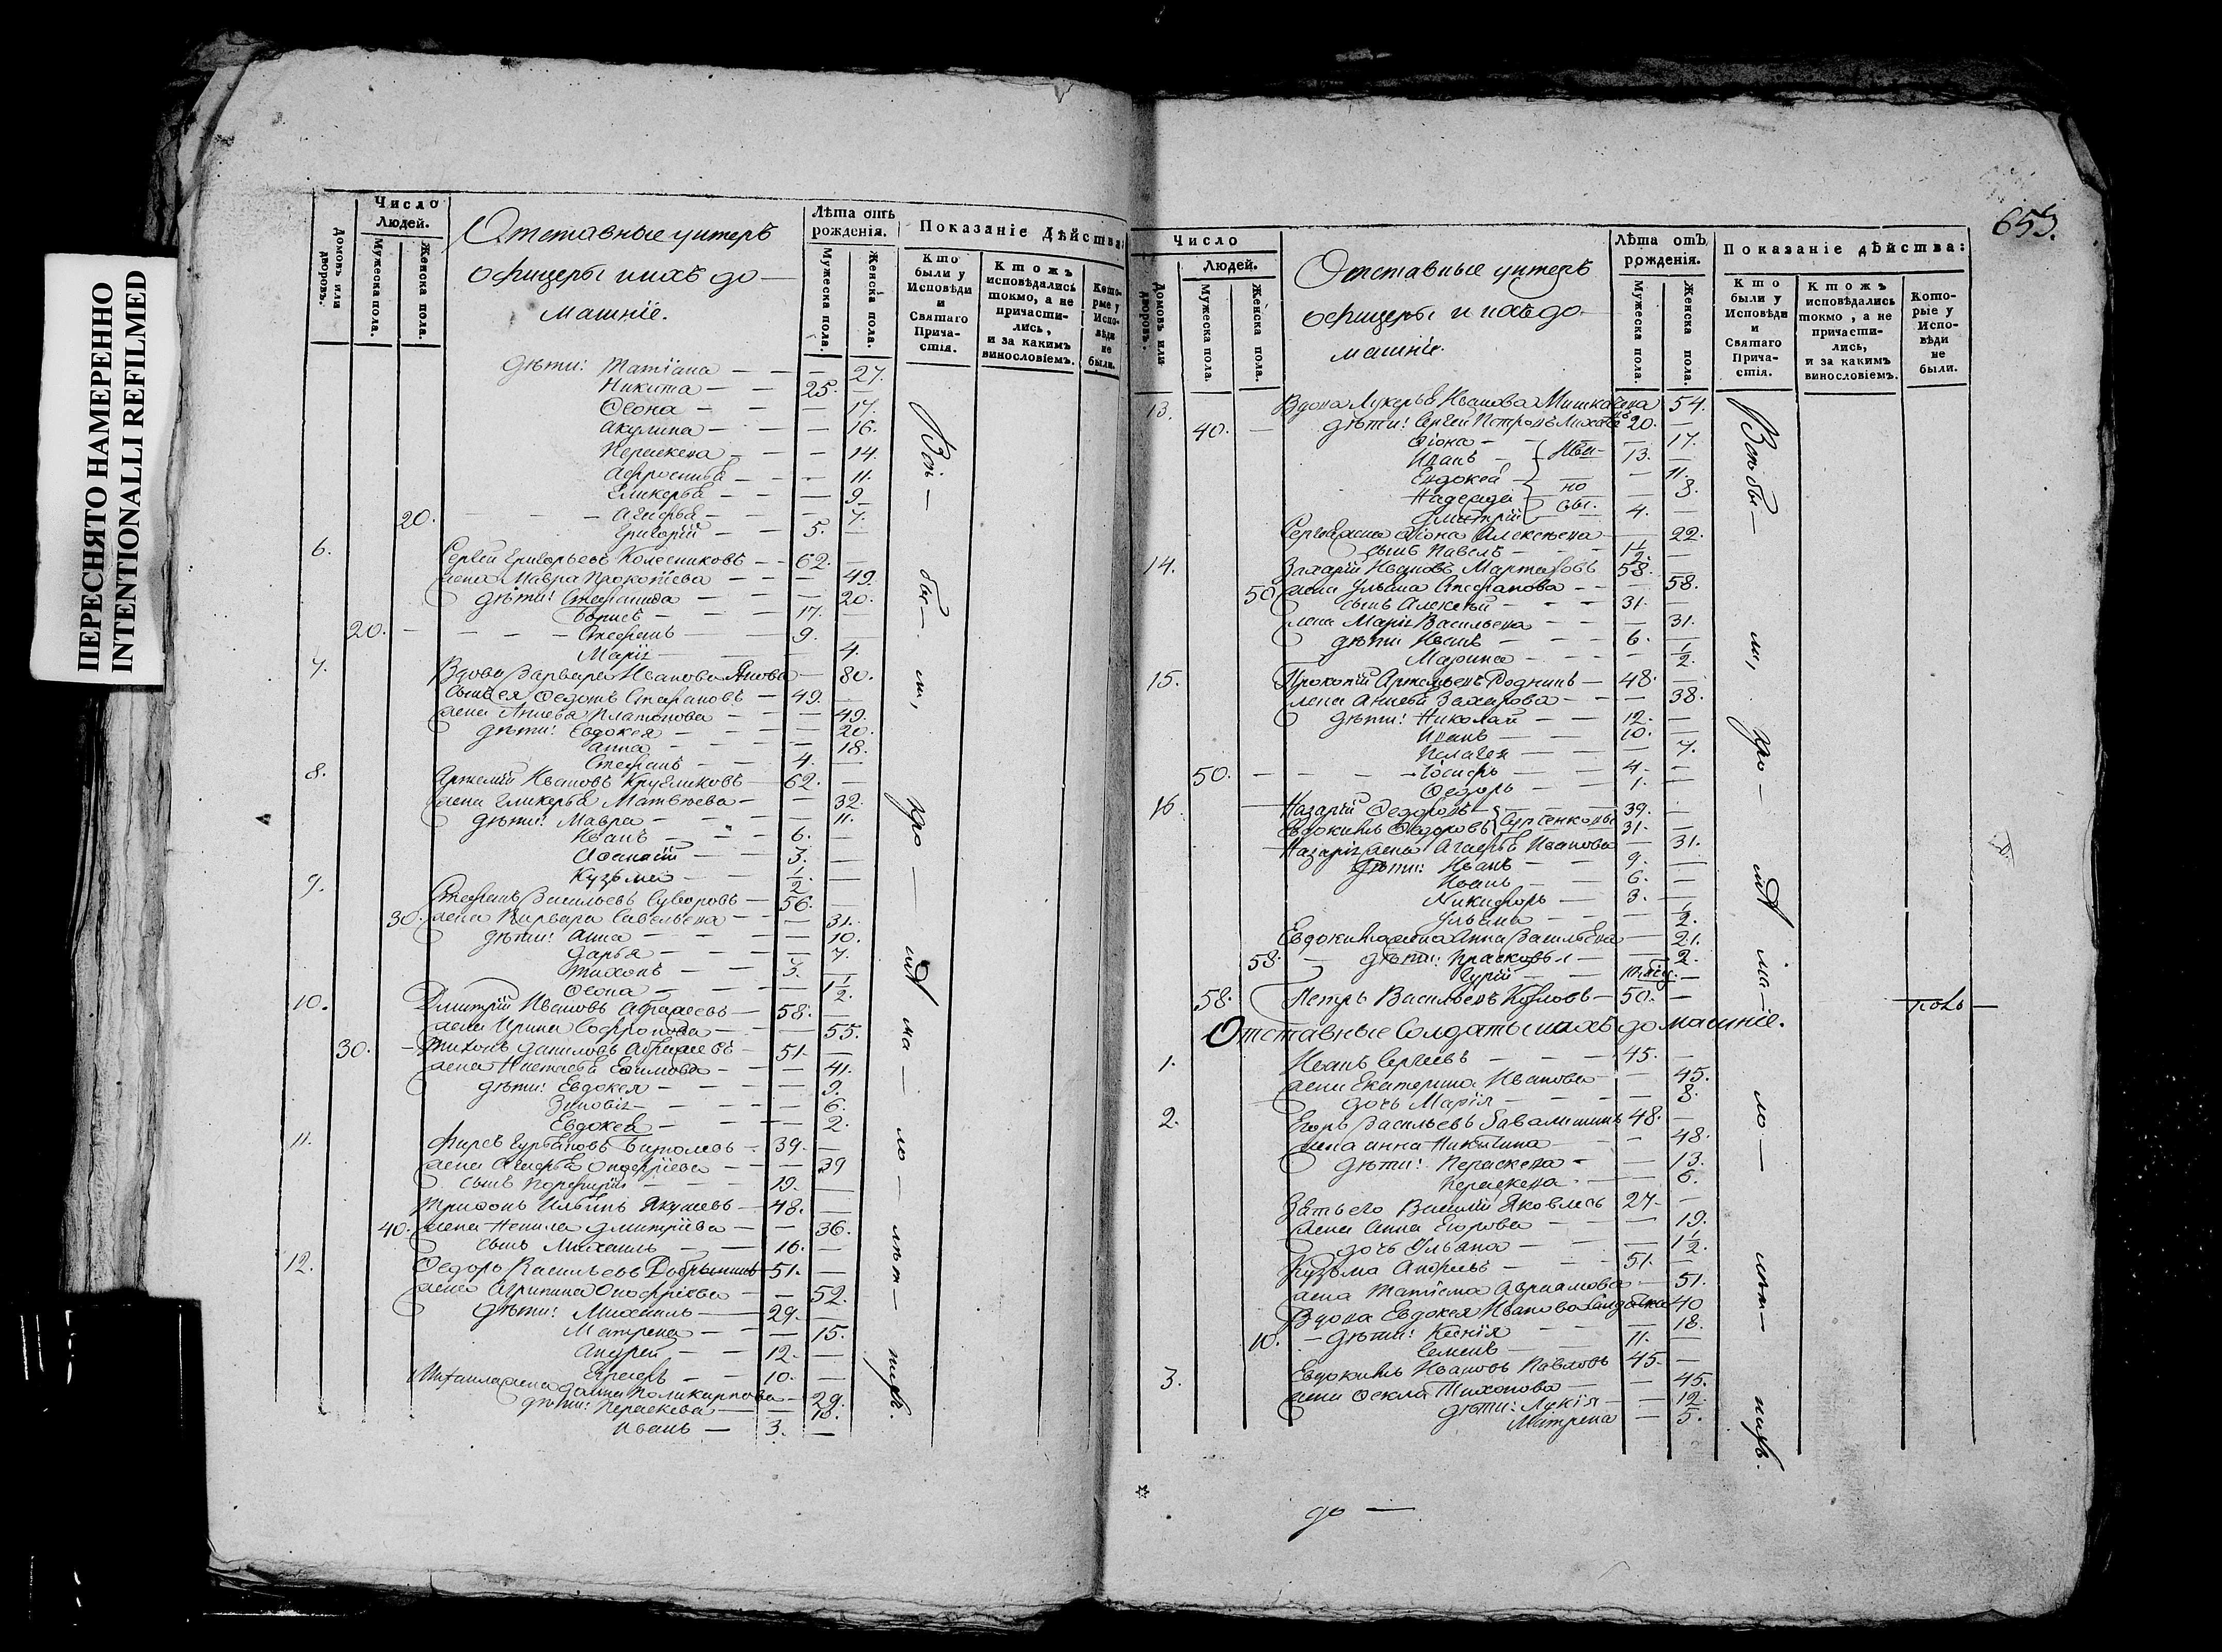 ПЕРЕСНЯТО НАМЕРЕННО
INTENTIONALLI REFILMED
Домовъ или дворовъ.
Число Людей.
Мужеска пола.
Женска пола.
Отставные унтеръ
офицеры и ихъ до-
машніе.
Лѣта отъ рожденія.
Мужеска пола.
Женска пола.
Показаніе дѣйства:
Кто были у Исповѣди и Святаго Прича-стія.
Ктожъ исповѣдались токмо, а не причасти-лись, и за какимъ винословіемъ.
Кото-рые у Испо-вѣди не были.
дѣти: Татіана — — 27.
Никита — 25. —
Ѳеона — — 17.
Акулина — — 16.
Параскева — — 14.
Афросинья — — 11.
Гликерья — — 9
20. — Агафья — — 7.
Григорій — 5. —
6. Сергей Григорьевъ Колесниковъ — 62. —
жена Мавра Прокопіева — — 49.
дѣти: Стефанида — — 20.
Борисъ — 17. —
20. — Стефанъ — 9. —
Марія — — 4.
7. Вдова Варвара Иванова — 80.
Сынъ ея Федотъ Стефановъ — 49. —
жена Платонова — — 49.
дѣти: Евдокея — — 20.
Анна — — 18.
Стефанъ — 4. —
8. Артемій Ивановъ Кругликовъ 62. —
жена Гликерья Матвѣева — — 32.
дѣти: Мавра — — 11.
Иванъ — 6. —
Афанасій — 3. —
Кузьма — 1/2. —
9. Стефанъ Васильевъ Суворовъ — 56. —
30. жена Варвара Савельева — — 31.
дѣти: Анна — — 10.
Дарья — — 7.
Тихонъ — 3. —
Ѳеона — — 1 1/2.
10. Дмитрій Ивановъ — 58. —
жена Ирина Софронова — — 55.
30. — Тихонъ Даниловъ — 51. —
жена Настасья Ефимова — — 41.
дѣти: Евдокея — — 9.
Зиновія — — 6.
Евдокея — — 2.
11. Фирсъ — 39. —
жена Агафья Онофріева — — 39
сынъ Порфирій — 19. —
Трифонъ Ильинъ Якушевъ — 48. —
40. жена Ненила Дмитріева — — 36.
сынъ Михаилъ — 16. —
12. Федоръ Васильевъ Добрынинъ 51. —
жена Агрипина Онофріева — — 52.
дѣти: Михаилъ — 29. —
Матрена — — 15.
Андрей — 12. —
Егоръ — 10. —
Михаила жена Домна Поликарпова — 29.
дѣти: Параскева — — 10.
Иванъ — 3. —
Въ — бы — ли, про — шт — ма — ло — лѣт — ныхъ.
653.
Домовъ или дворовъ.
Число Людей.
Мужеска пола.
Женска пола.
Отставные унтеръ
офицеры и ихъ до-
машніе.
Лѣта отъ рожденія.
Мужеска пола.
Женска пола.
Показаніе дѣйства:
Кто были у Исповѣди и Святаго Прича-стія.
Ктожъ исповѣдались токмо, а не причасти-лись, и за какимъ винословіемъ.
Кото-рые у Испо-вѣди не были.
13. Вдова Лукерья Иванова — 54.
40. — дѣти: Сергей Петровъ 20. —
Фіона — — 17.
Иванъ — Ива- 13. —
Евдокея — но — 11.
Надежда — вы. — 8.
Дмитрій — 4. —
Сергея жена Фіона Алексѣева — 22.
сынъ Павелъ — 1 1/2. —
14. Захарій Ивановъ Мартыновъ 58. —
50 жена Ульяна Стефанова — — 58.
сынъ Алексѣй — 31. —
жена Марія Васильева — — 31.
дѣти Иванъ — 6. —
Марина — — 1/2.
15. Прокопій Артемьевъ Роднинъ — 48. —
жена Захарова — — 38.
дѣти: Николай — 12. —
Иванъ — 10. —
Пелагея — — 7.
50. — Іосифъ — 4. —
Федоръ — 1. —
16. Назарій Федоровъ — 39. —
Евдокимъ Федоровъ Сергенковы 31. —
Назарія жена Агафья Иванова — 31.
дѣти: Иванъ — 9. —
Иванъ — 6. —
Никифоръ — 3. —
Ульяна — — 1/2.
Евдокима жена Анна Васильева — 21.
58. — дѣти: Прасковья — — 2.
Гурій — 10. мѣс. —
58. Петръ Васильевъ Козловъ — 50. —
Отставные Солдаты и ихъ домашніе.
1. Иванъ Сергеевъ — 45. —
жена Екатерина Иванова — — 45.
дочь Марія — — 8.
2. Егоръ Васильевъ Завалишинъ 48. —
жена Анна Никитина — — 48.
дѣти: Параскева — — 13.
Параскева — — 6.
Зять его Василій Яковлевъ 27. —
жена Анна Егорова — — 19.
дочь Ульяна — — 1 1/2.
Кузьма Андреевъ — 51. —
жена Татіана Авраамова — 51.
Вдова Евдокея Иванова 40
10. — дѣти: Ксенія — — 18.
Семенъ — 11. —
3. Евдокимъ Ивановъ Павловъ 45. —
жена Фекла Тихонова — — 45.
дѣти: Лукія — — 12.
Матрена — — 5.
Въ бы — ли, про — шт ма — ло — лѣт — ныхъ.
до —